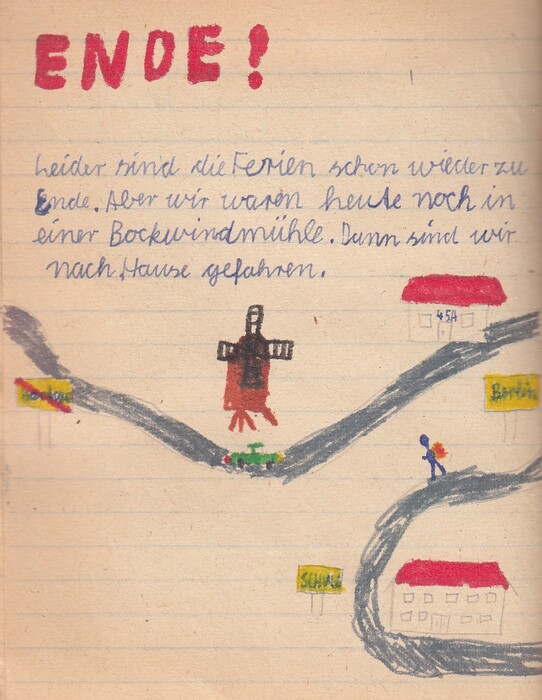 ENDE!
Leider sind die Ferien schon wieder zu
Ende. Aber wir waren heute noch in
einer Bockwindmühle. Dann sind wir
nach Hause gefahren.
45A
Berlin
SCHULE